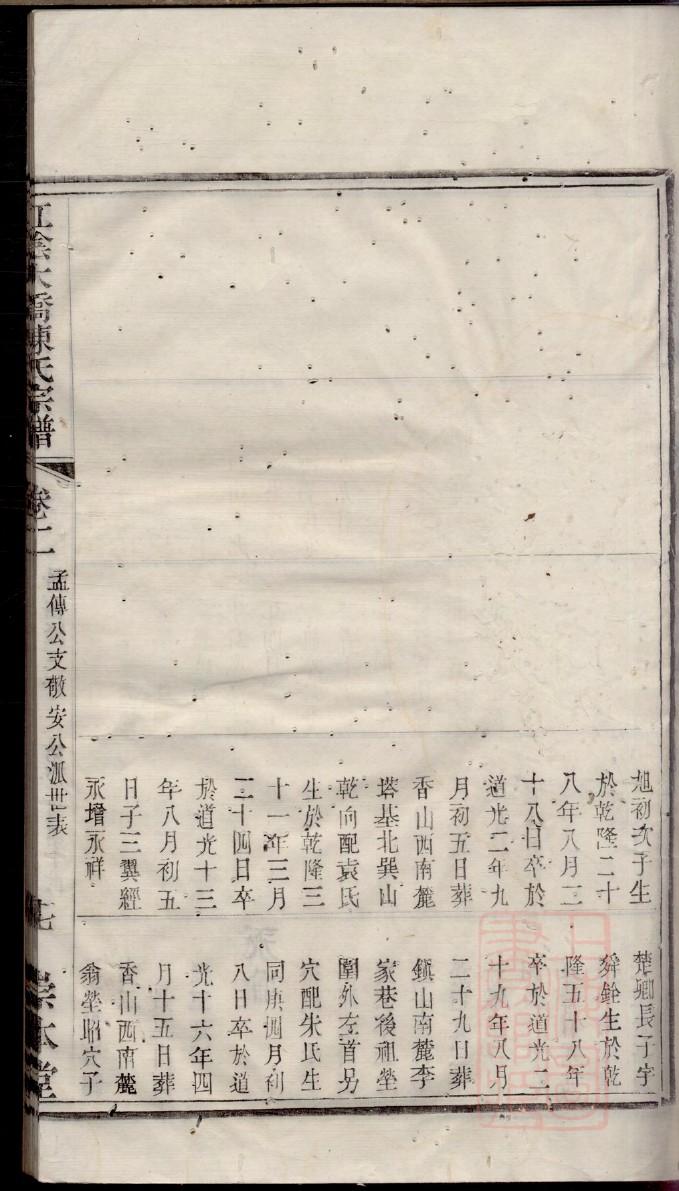 旭初次子生
於乾隆二十
八年八月二
十八日卒於
道光二年九
月初五日葬
香山西南麓
塔基北巽山
乾向配袁氏
生於乾隆三
十一年三月
二十四日卒
於道光十三
年八月初五
日子三翼經
永增永祥
楚卿長子字
舜銓生於乾
隆五十八年
卒於道光二
十九年八月
二十九日葬
鎮山南麓李
家巷後祖塋
圍外左首另
穴配朱氏生
同庚四月初
八日卒於道
光十六年四
月十五日葬
香山西南麓
翁塋昭穴子
江陰大橋陳氏宗譜
卷二
孟傳公支敬安公派世表
宗本堂